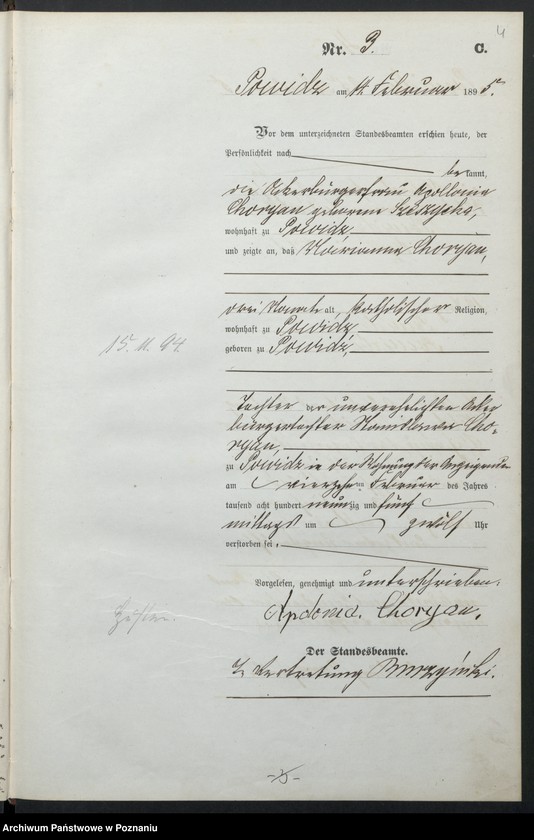 4
Nr. 3. C.
Powidz am 14 Februar 1895.
Vor dem unterzeichneten Standesbeamten erschien heute, der
Persönlichkeit nach
bekannt,
die Ackerbürgerfrau Apollonia
Chorzan geborene
wohnhaft zu Powidz
und zeigte an, daß Marianna Chorzan,
drei Monate alt, katholischer Religion,
wohnhaft zu Powidz,
geboren zu Powidz,
15. 11. 94.
Tochter der unverehelichten Acker
bürgertochter Stanislawa Cho-
rzan,
zu Powidz in der Wohnung der Anzeigenden
am vierzehnten Februar des Jahres
tausend acht hundert neunzig und fünf
mittags um zwölf Uhr
verstorben sei.
Vorgelesen, genehmigt und unterschrieben:
Apolonia Chorzan.
Der Standesbeamte.
In Vertretung
Archiwum Państwowe w Poznaniu